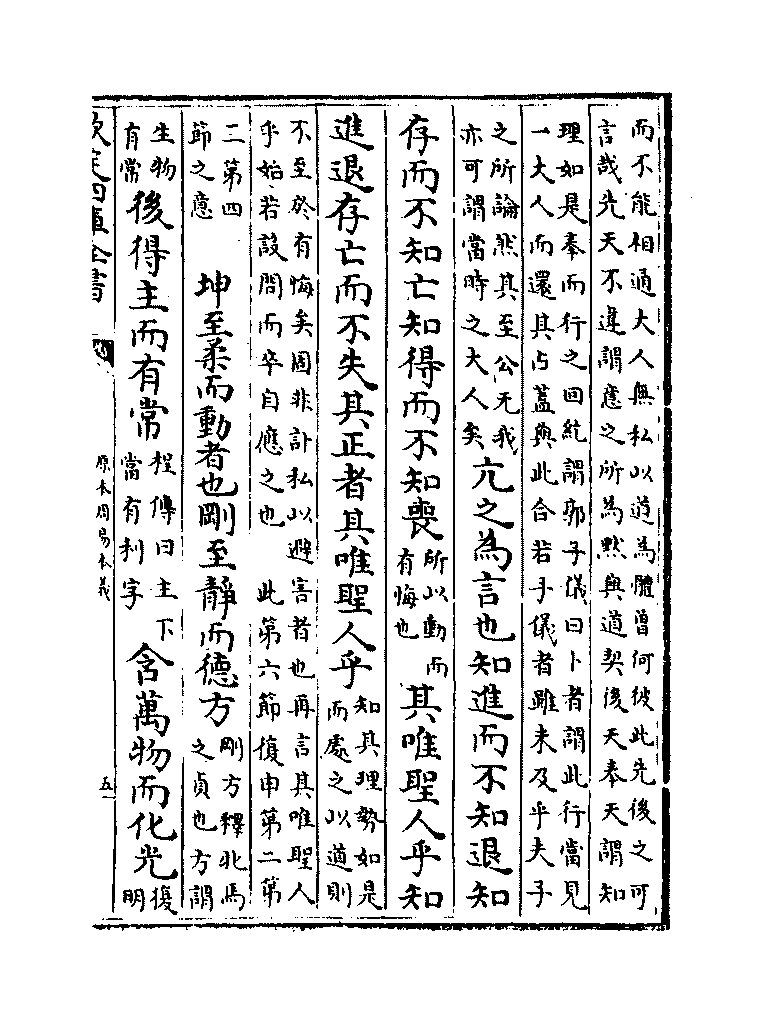 而不能相通大人無私以道為體曾何彼此先後之可
言哉先天不違謂意之所為黙與道契後天奉天謂知
理如是奉而行之回紇謂郭子儀曰卜者謂此行當見
一大人而還其占蓋與此合若子儀者雖未及乎夫子
之所論然其至公无我
亦可謂當時之大人矣
亢之為言也知進而不知退知
存而不知亡知得而不知喪
所以動而
有悔也
其唯聖人乎知
進退存亡而不失其正者其唯聖人乎
知其理勢如是
而處之以道則
不至於有悔矣固非計私以避害者也再言其唯聖人
乎始若設問而卒自應之也　此第六節復申第二第
二第四
節之意
坤至柔而動者也剛至靜而德方
剛方釋牝馬
之貞也方謂
生物
有常
後得主而有常
程傳曰主下
當有利字
含萬物而化光
復
明
欽定四庫全書
原本周易本義
五